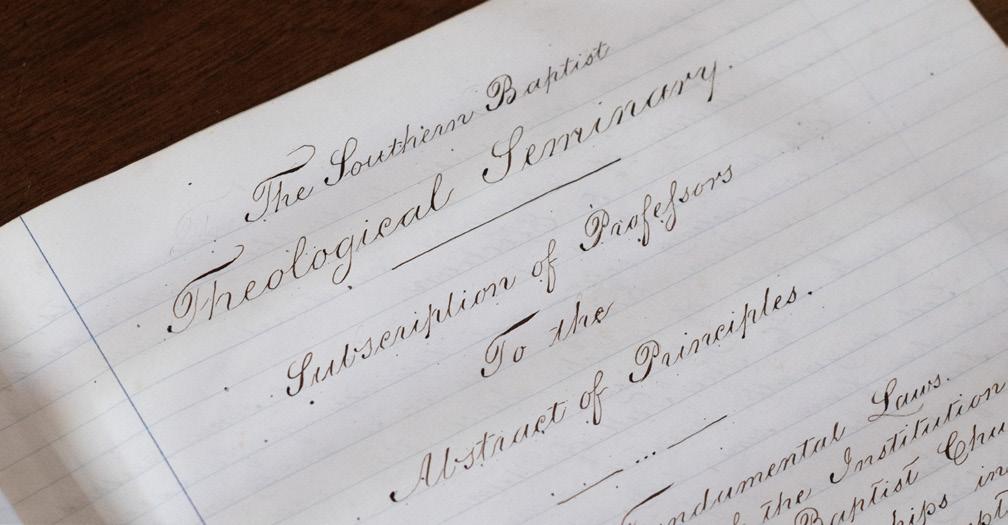 The Southern Baptist
Theological Seminary.
Subscription of Professors
To the
Abstract of Principles.
Laws.
the Institution
Baptist